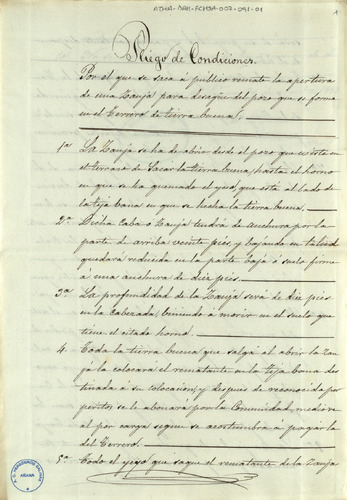 ATHA-DAH-FCMSA-007-091-01
1
Pliego de Condiciones.
Por el que se saca à publico remate la apertura
de una Zanja para desagüe del pozo que se forma
en el Terrero de tierra buena.
1ª La Zanja se ha de abrir desde el pozo que existe en
el terreno de Sacar la tierra buena, hasta el horno
en que se ha quemado el yeso, que está al lado de
la teja bana en que se hecha la tierra buena.
2ª Dicha Caba ó Zanja tendrá de anchura por la
parte de arriba veinte pies, y bajando en talud
quedará reducida en la parte baja ó suelo firme
á una anchura de diez pies.
3ª La profundidad de la Zanja será de diez pies
en la Cabezada, biniendo à morir en el suelo que
tiene el citado horno.
4. Toda la tierra buena que salga al abrir la Zan
ja la colocará el rematante en la teja bana des
tinada a su colocacion, y despues de reconocida por
peritos se le abonará por la Comunidad, medio re
al por carga segun se acostumbra à pagar la
del Terrero.
5ª Todo el yeso que saque el rematante de la Zanja
AÑANA